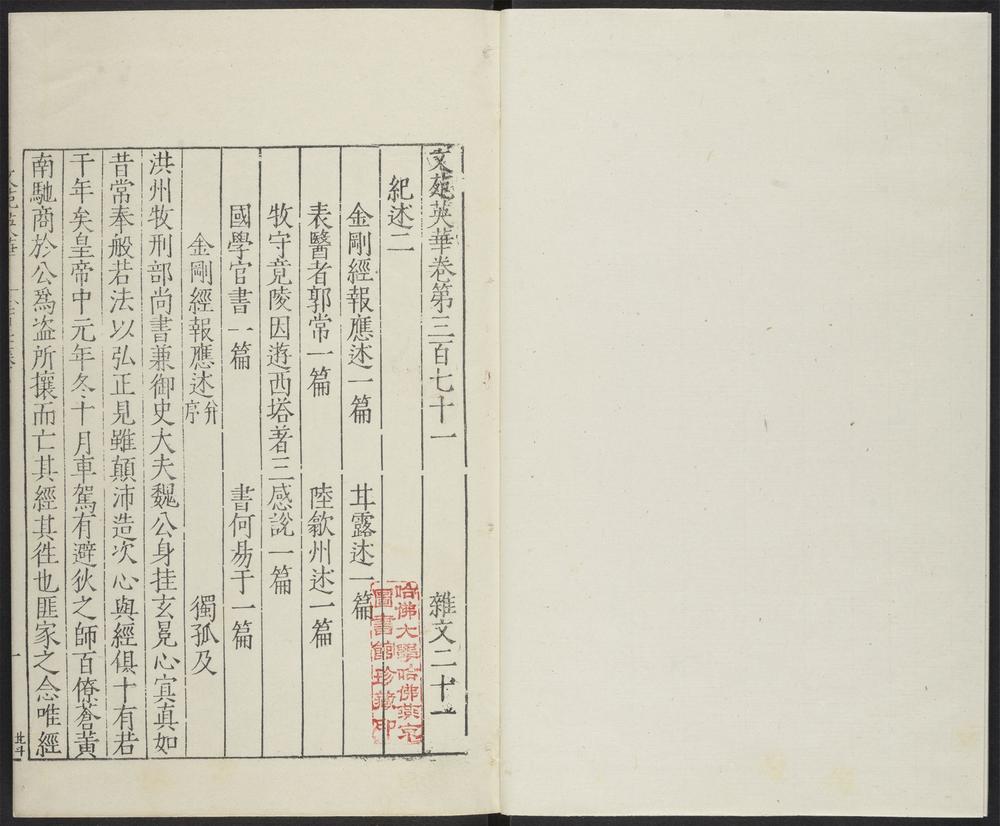 文苑英華卷第三百七十一 雜文二十一
紀述二
金剛經報應述一篇 甘露述一篇
表醫者郭常一篇 陸歙州述一篇
牧守竟陵因遊西塔著三感說一篇
國學官書一篇 書何昜于一篇
金剛經報應述并序 獨孤及
洪州牧刑部尚書兼御史大夫魏公身挂玄冕心㝠真如
昔常奉般若法以弘正見雖顛沛造次心與經俱十有若
干年矣皇帝中元年冬十月車駕有避狄之師百僚蒼黃
南馳商於公爲盗所攘而亡其經其徃也匪家之念唯經
一
哈佛大學哈佛燕京
圖書館珍藏印